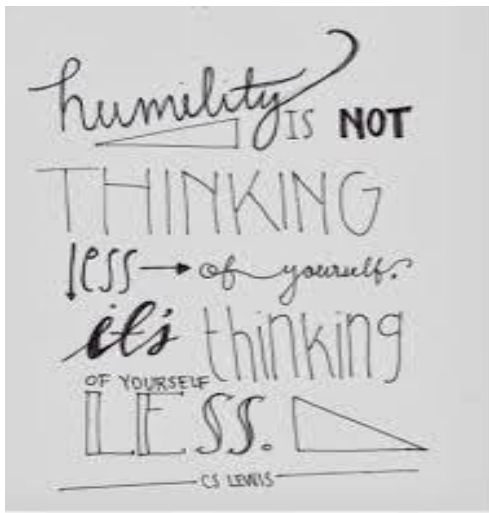 humility IS NOT
THINKING
less of yourself.
it's thinking
OF YOURSELF
LESS.
CS LEWIS